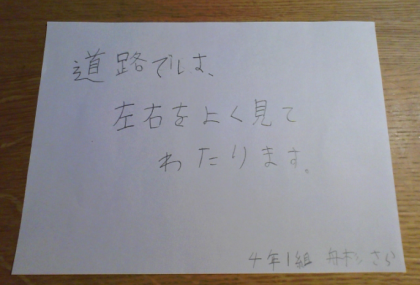 道路では、
左右をよく見て
わたります。
4年1組 さら